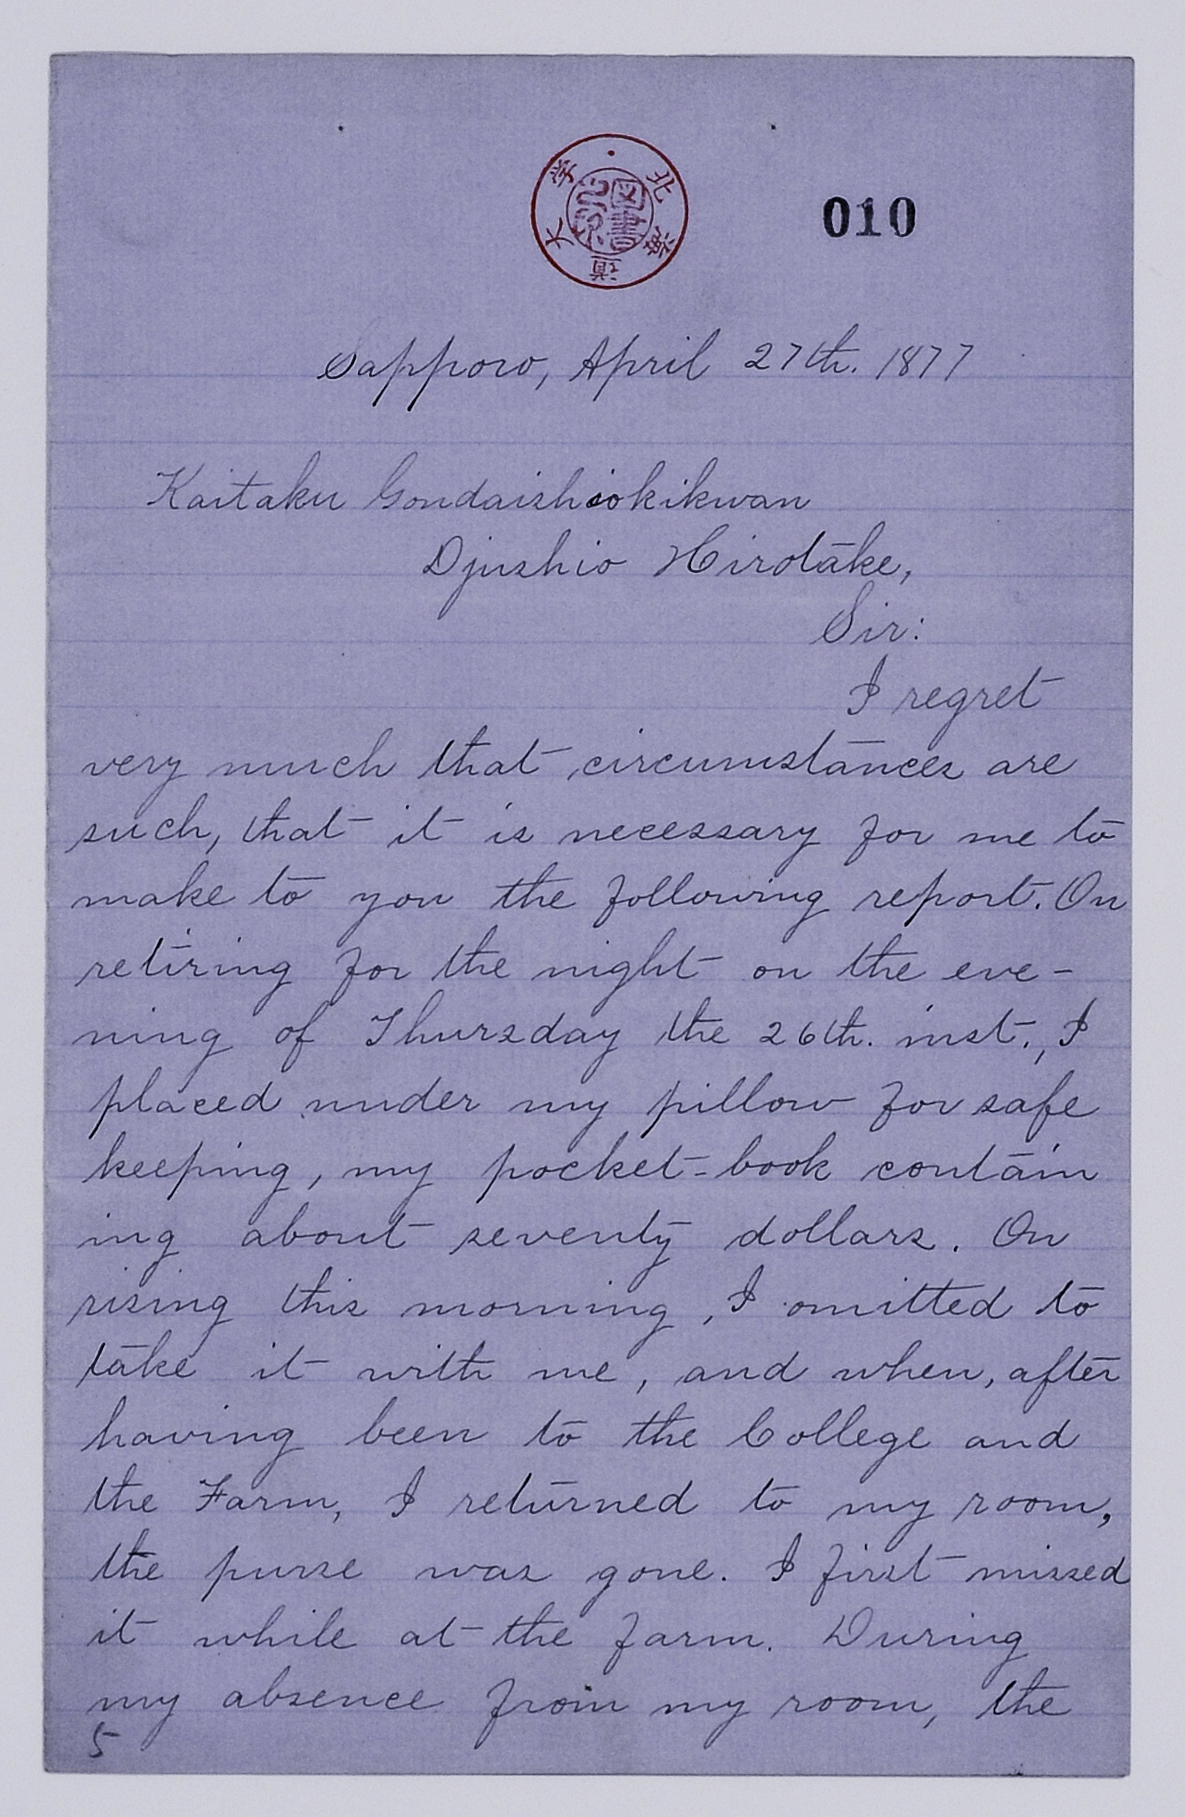 北海道大学
図書
010
Sapporo, April 27th. 1877
Kaitaku Gondaishiokikwan
Djushio Hirotake,
Sir:
I regret
very much that circumstances are
such, that it is necessary for me to
make to you the following report. On
retiring for the night on the eve-
ning of Thursday the 26th. inst., I
placed under my pillow for safe
keeping, my pocket-book contain
ing about seventy dollars. On
rising this morning, I omitted to
take it with me, and when, after
having been to the College and
the Farm, I returned to my room,
the purse was gone. I first missed
it while at the farm. During
my absence from my room, the
5